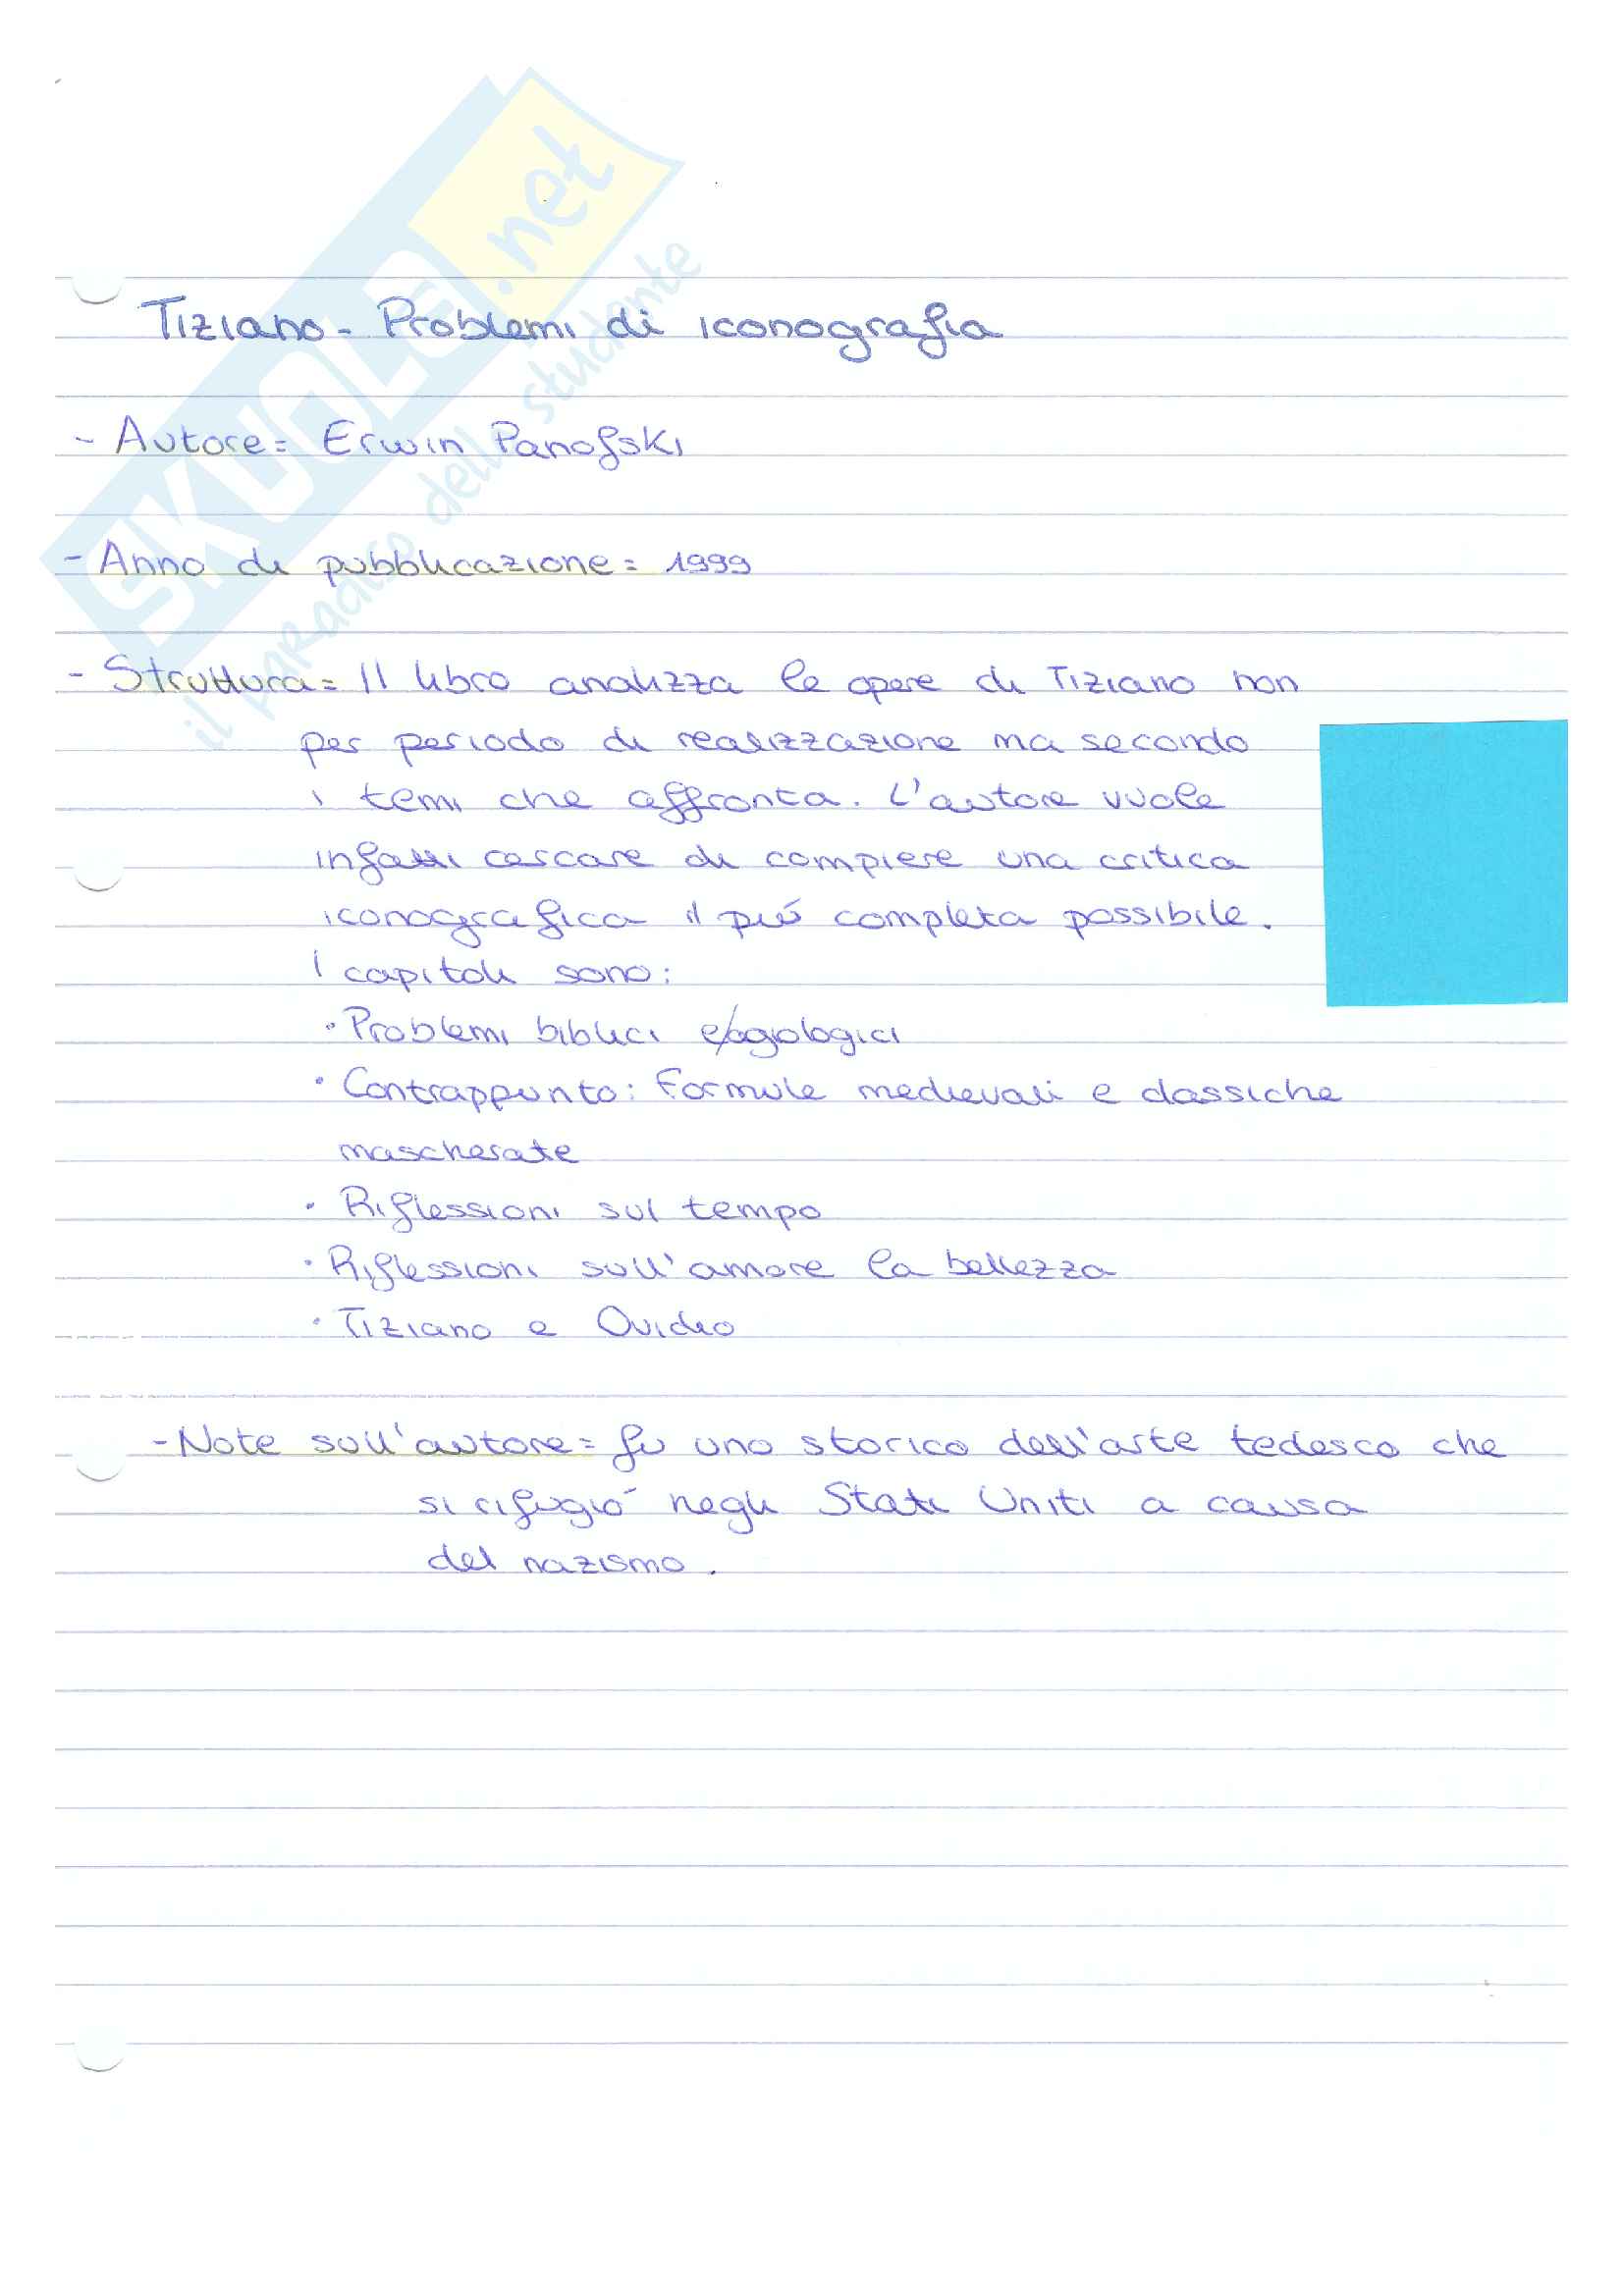 SKUOLA.net
il paradiso dello studente
Tiziano - Problemi di iconografia
- Autore = Erwin Panofski
- Anno di pubblicazione = 1999
- Struttura = Il libro analizza le opere di Tiziano non
per periodo di realizzazione ma secondo
i temi che affronta. L'autore vuole
infatti cercare di compiere una critica
iconografica il più completa possibile.
I capitoli sono:
• Problemi biblici e/agiologici
• Contrappunto: Formule medievali e classiche
mascherate
• Riflessioni sul tempo
• Riflessioni sull'amore la bellezza
• Tiziano e Ovidio
- Note sull'autore = fu uno storico dell'arte tedesco che
si rifugió negli Stati Uniti a causa
del nazismo.